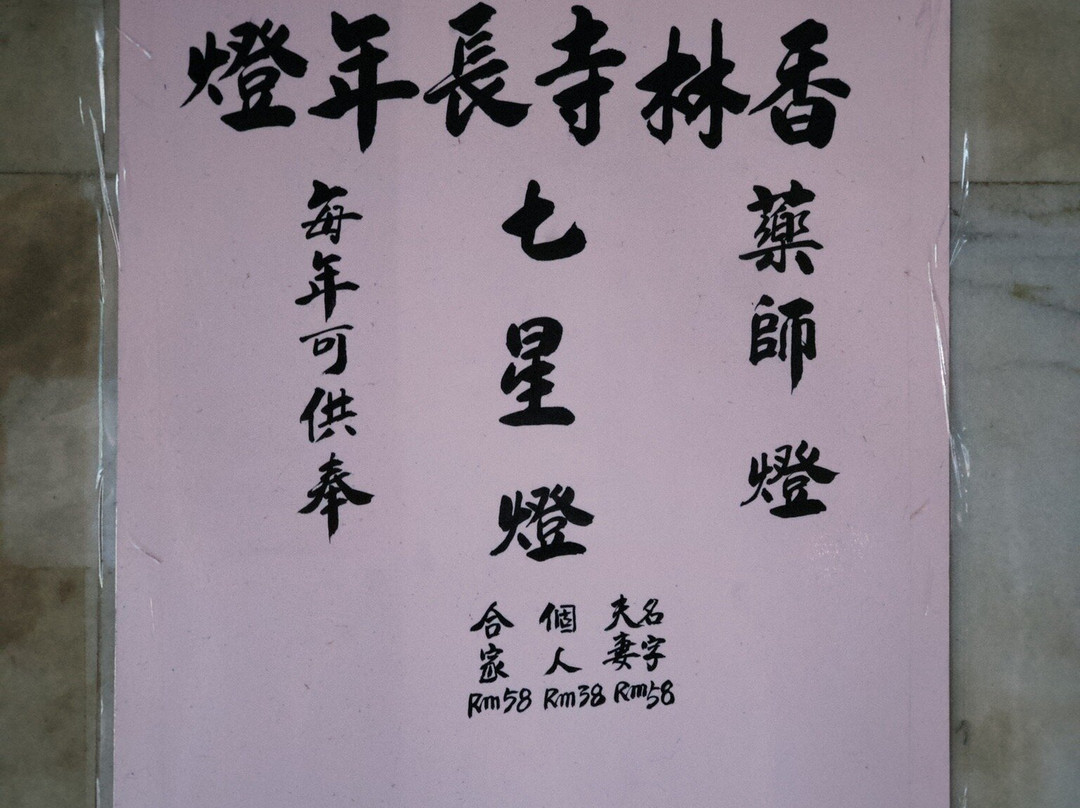 香林寺長年燈
藥師燈
七星燈
每年可供奉
名字
夫妻
Rm58
個人
Rm38
合家
Rm58